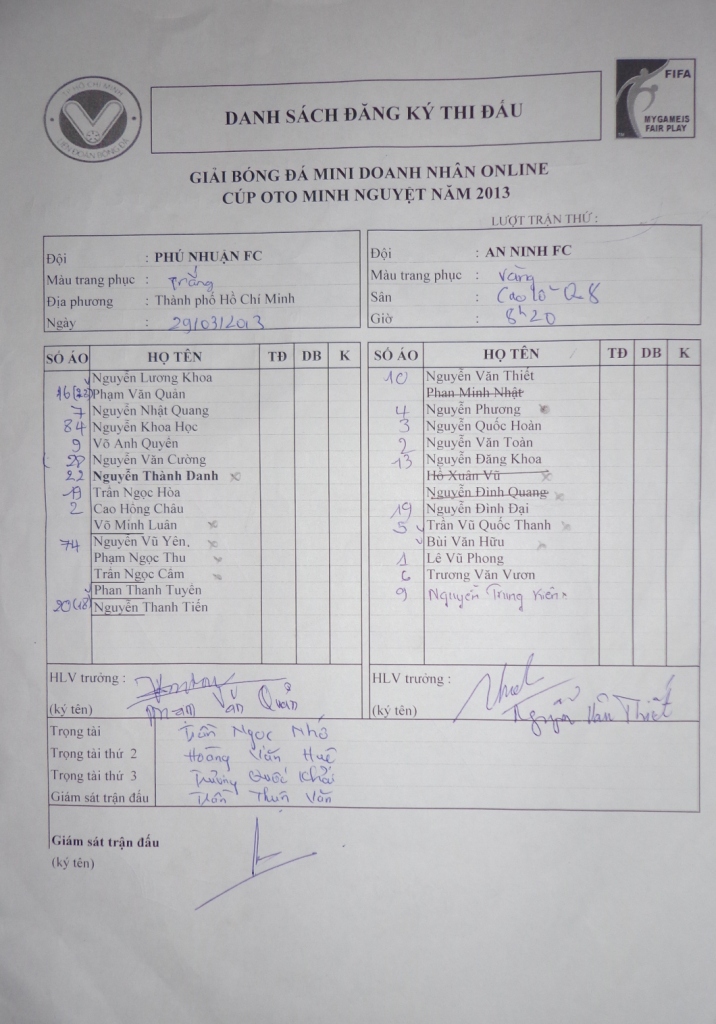 TP.HỒ CHÍ MINH
LIÊN ĐOÀN BÓNG ĐÁ
DANH SÁCH ĐĂNG KÝ THI ĐẤU
FIFA
MY GAME IS
FAIR PLAY
GIẢI BÓNG ĐÁ MINI DOANH NHÂN ONLINE
CÚP OTO MINH NGUYỆT NĂM 2013
LƯỢT TRẬN THỨ :
Đội : PHÚ NHUẬN FC
Màu trang phục : Trắng
Địa phương : Thành phố Hồ Chí Minh
Ngày : 29/03/2013
Đội : AN NINH FC
Màu trang phục : Vàng
Sân : Cao lỗ - Q8
Giờ : 8h20
SỐ ÁO HỌ TÊN TĐ DB K
Nguyễn Lương Khoa
16 (22) Phạm Văn Quản
7 Nguyễn Nhật Quang
84 Nguyễn Khoa Học
9 Võ Anh Quyến
28 Nguyễn Văn Cường
22 Nguyễn Thành Danh
19 Trần Ngọc Hòa
2 Cao Hồng Châu
Võ Minh Luân
74 Nguyễn Vũ Yên.
Phạm Ngọc Thu
Trần Ngọc Cẩm
Phan Thanh Tuyền
20 (18) Nguyễn Thanh Tiến
SỐ ÁO HỌ TÊN TĐ DB K
10 Nguyễn Văn Thiết
Phan Minh Nhật
4 Nguyễn Phương
3 Nguyễn Quốc Hoàn
2 Nguyễn Văn Toản
13 Nguyễn Đăng Khoa
Hồ Xuân Vũ
Nguyễn Đình Quang
19 Nguyễn Đình Đại
5 Trần Vũ Quốc Thanh
Bùi Văn Hữu
1 Lê Vũ Phong
6 Trương Văn Vươn
9 Nguyễn Trung Kiên
HLV trưởng :
(ký tên) Phạm Văn Quản
HLV trưởng :
(ký tên) Nguyễn Văn Thiết
Trọng tài Trần Ngọc Nhớ
Trọng tài thứ 2 Hoàng Văn Huê
Trọng tài thứ 3 Trương Quốc Khải
Giám sát trận đấu Trần Văn
Giám sát trận đấu
(ký tên)